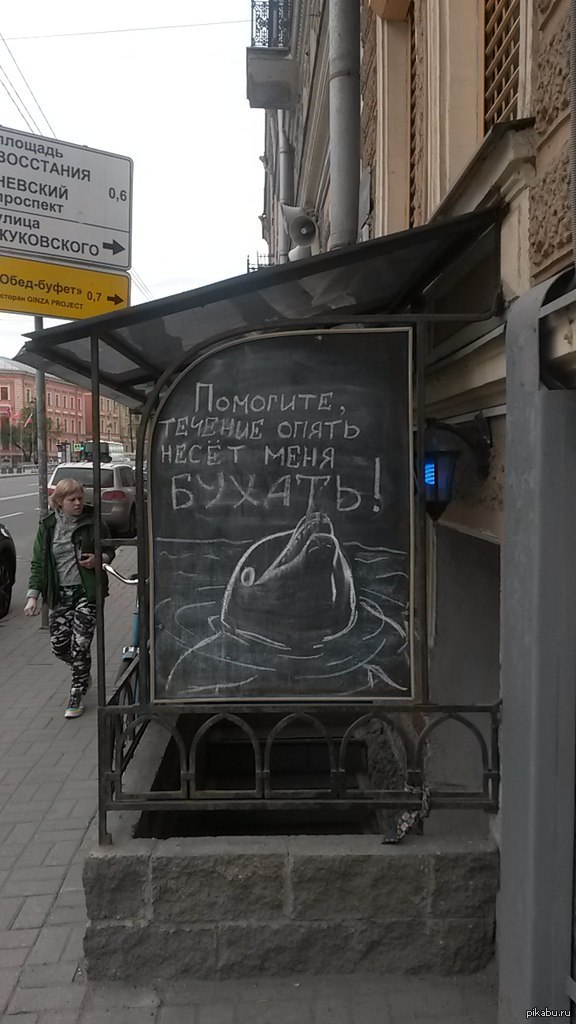 площадь
ВОССТАНИЯ
НЕВСКИЙ 0,6
проспект
улица
ЖУКОВСКОГО
Обед-буфет» 0,7
сторан GINZA PROJECT
Помогите,
течение опять
несёт меня
БУХАТЬ!
pikabu.ru